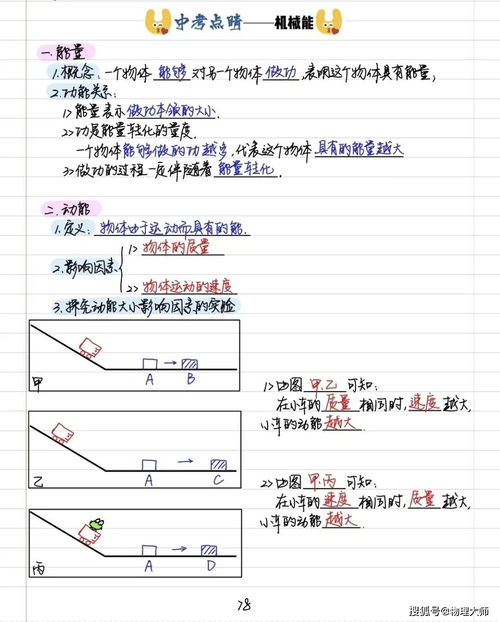 中考点睛——机械能
一.能量
1.概念:一个物体 能够 对另一个物体 做功,表明这个物体具有能量,
2.功能关系:
1>能量表示做功本领的大小.
2>功是能量转化的量度.
一个物体能够做的功越多,代表这个物体具有的能量越大
3>做功的过程一定伴随着 能量转化.
二.动能
1.定义:物体由于运动而具有的能.
2.影响因素
1>物体的质量
2>物体运动的速度
3.探究动能大小影响因素的实验
甲 A B
1>由图 甲.乙 可知:
在小车的 质量 相同时,速度 越大,
小车的动能越大.
乙 A C
2>由图 甲.丙 可知:
在小车的 速度 相同时,质量 越大,
小车的动能越大.
丙 A D
78
搜狐号@物理大师